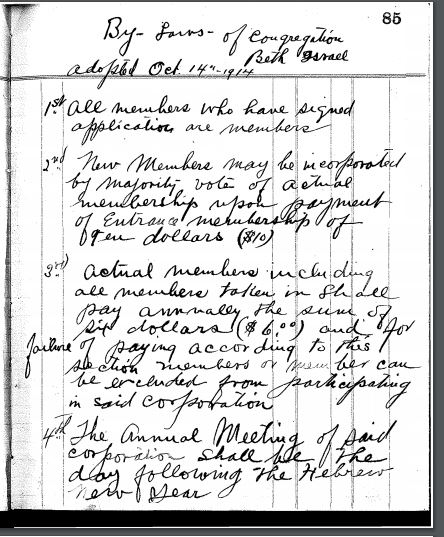 85
By-Laws- of Congregation
Beth Israel
adopted Oct. 14th-1914
1st. All members who have signed
application are members
2nd New Members may be incorporated
by majority vote of actual
membership upon payment
of Entrance membership of
Ten dollars ($10)
3rd) Actual members including
all members taken in shall
pay annually the sum of
six dollars ($6.00) and for
failure of paying according to this
section members or member can
be excluded from participating
in said corporation
4th The Annual Meeting of said
corporation shall be the
day following the Hebrew
New Year